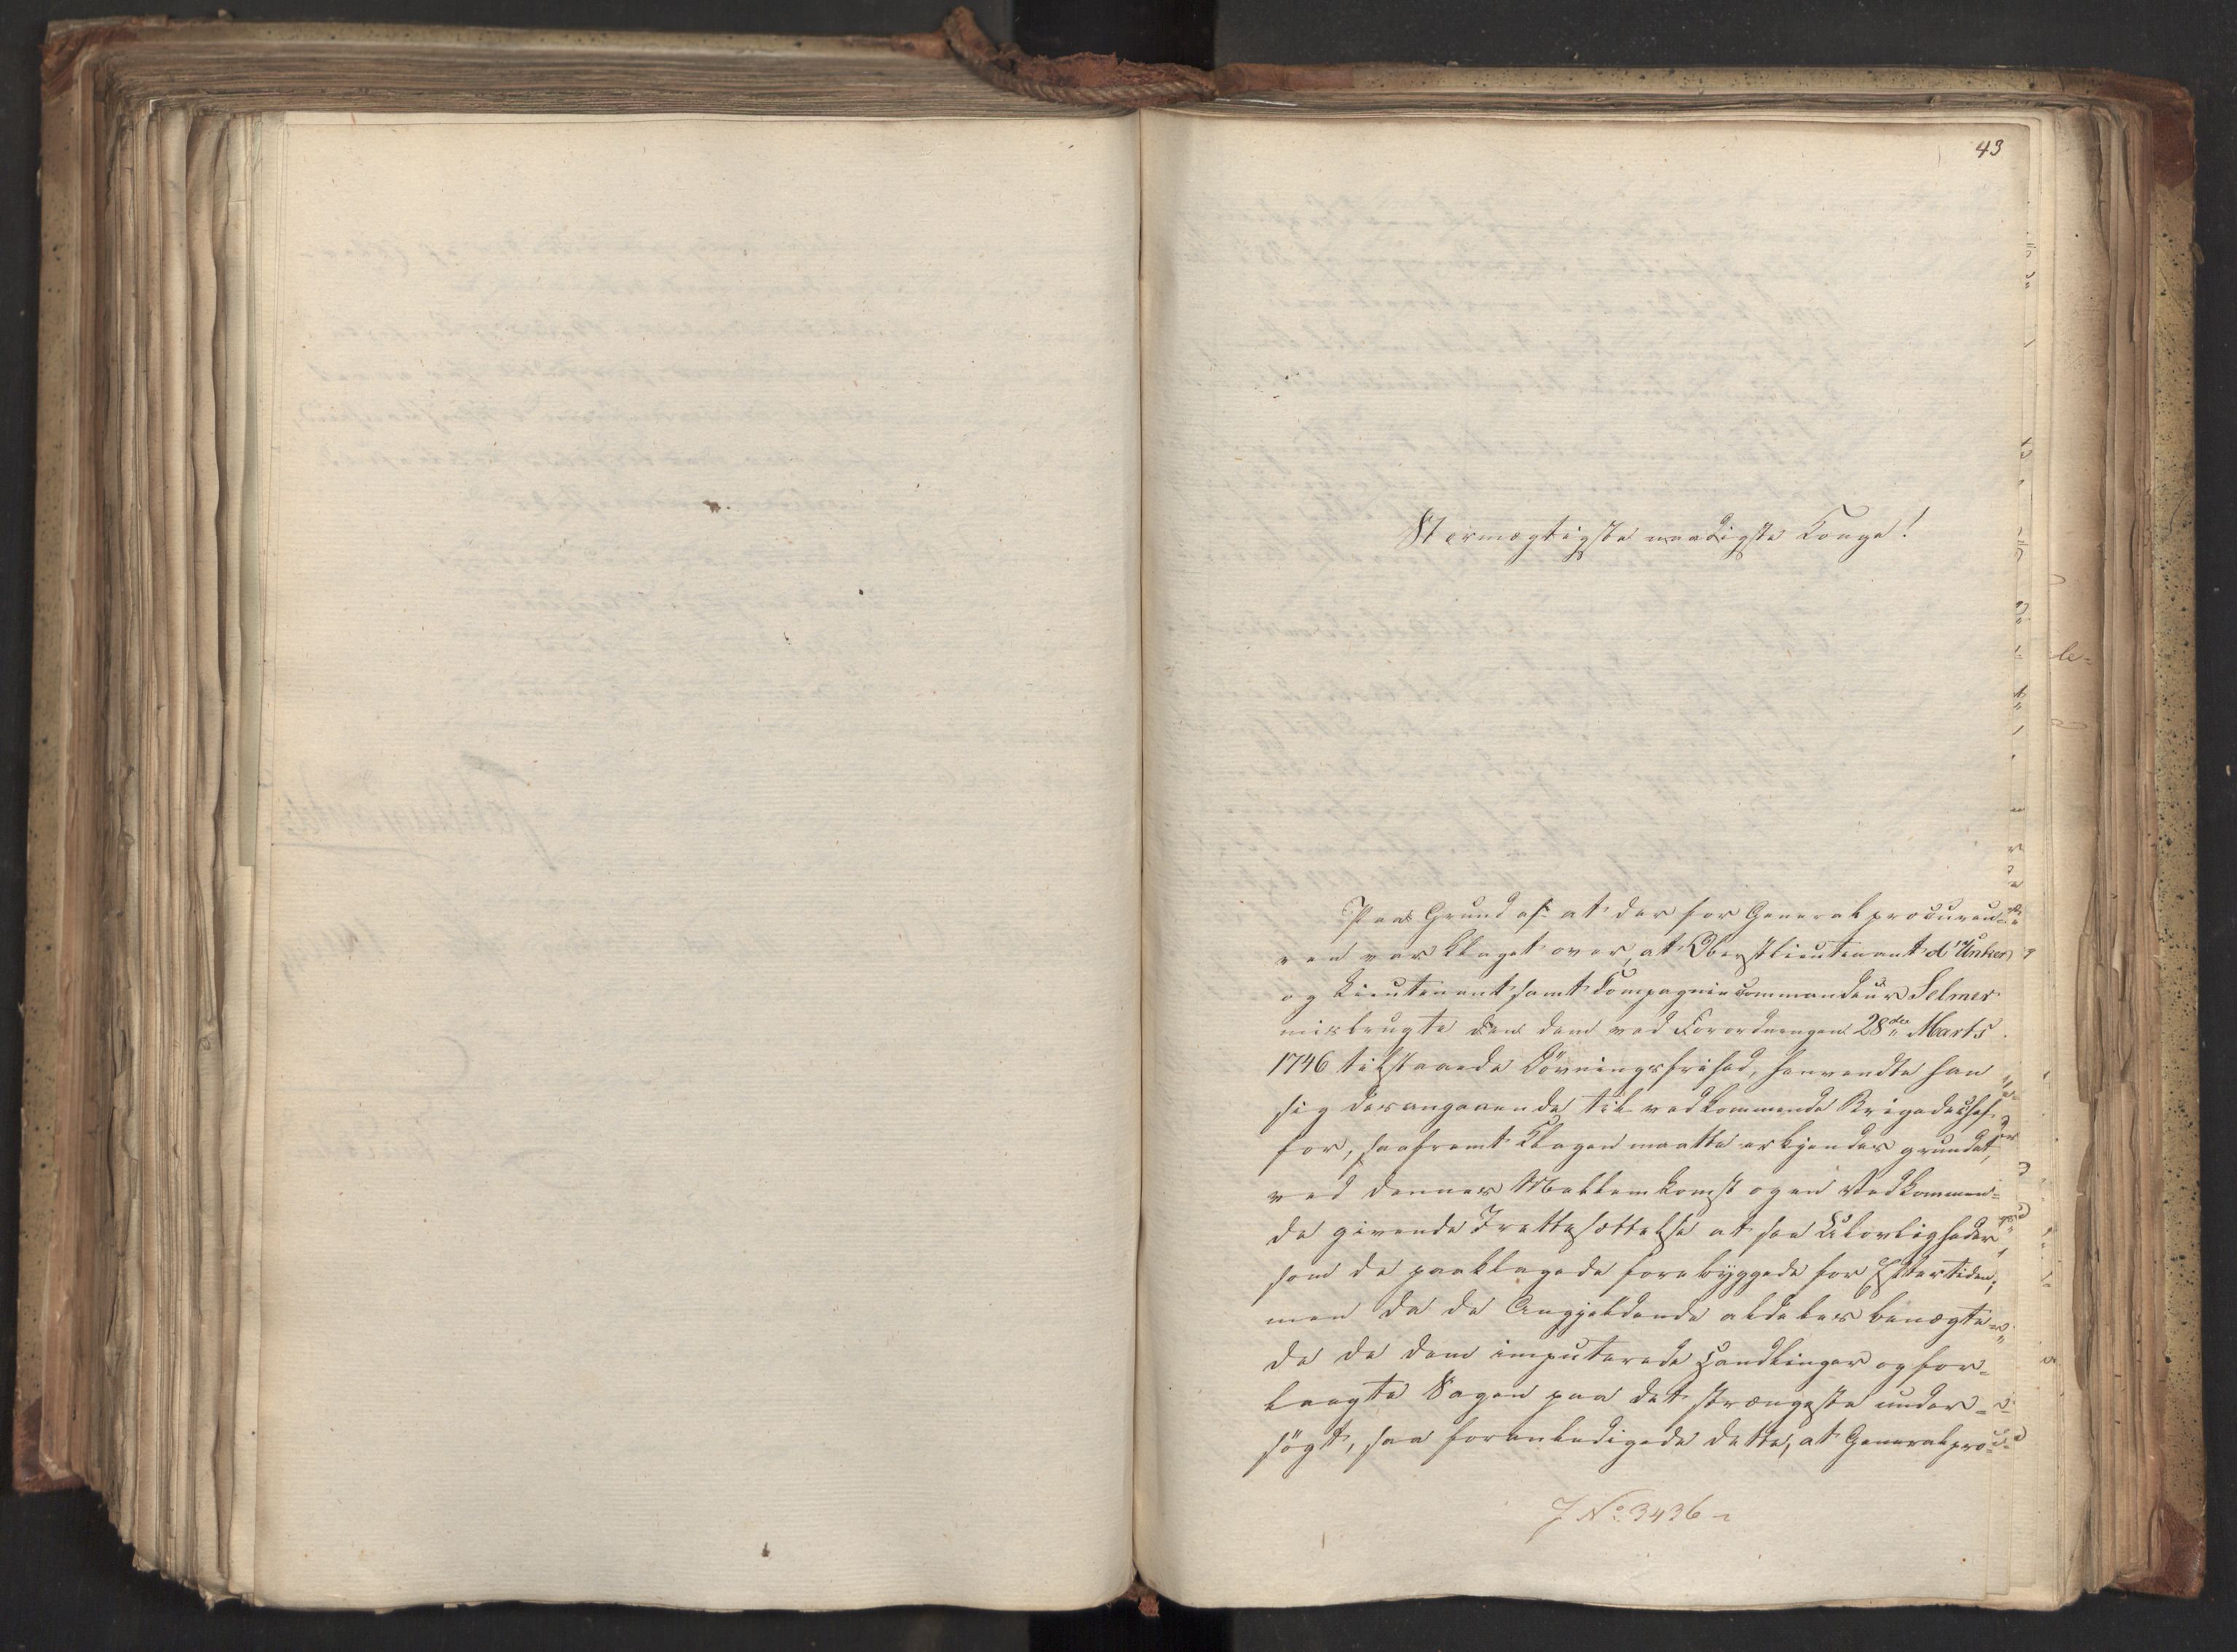 43
Stormægtigste naadigste Konge!
Paa Grund af at der for Generalprocureu¬
ren var klaget over, at Oberstlieutenant d'Unker
og Lieutenant samt Compagniecommandeur Selmer
misbrugte den dem ved Forordningen 28de Marts
1746 tilstaaede Løvningsfrihed, henvendte han
sig desangaaende til vedkommende Brigadechef
for, saafremt Klagen maatte erkjendes grundet,
ved dennes Mellemkomst og en Vedkommen=
de givende Irettesættelse at see Ulovligheder
som de paaklagede forebyggede for Eftertiden;
men da de Angjeldende aldeles benægte=
de de dem imputerede Handlinger og for=
langte Sagen paa det strængeste under=
søgt, saa foranledigede dette, at Generalpro=
J No 3436